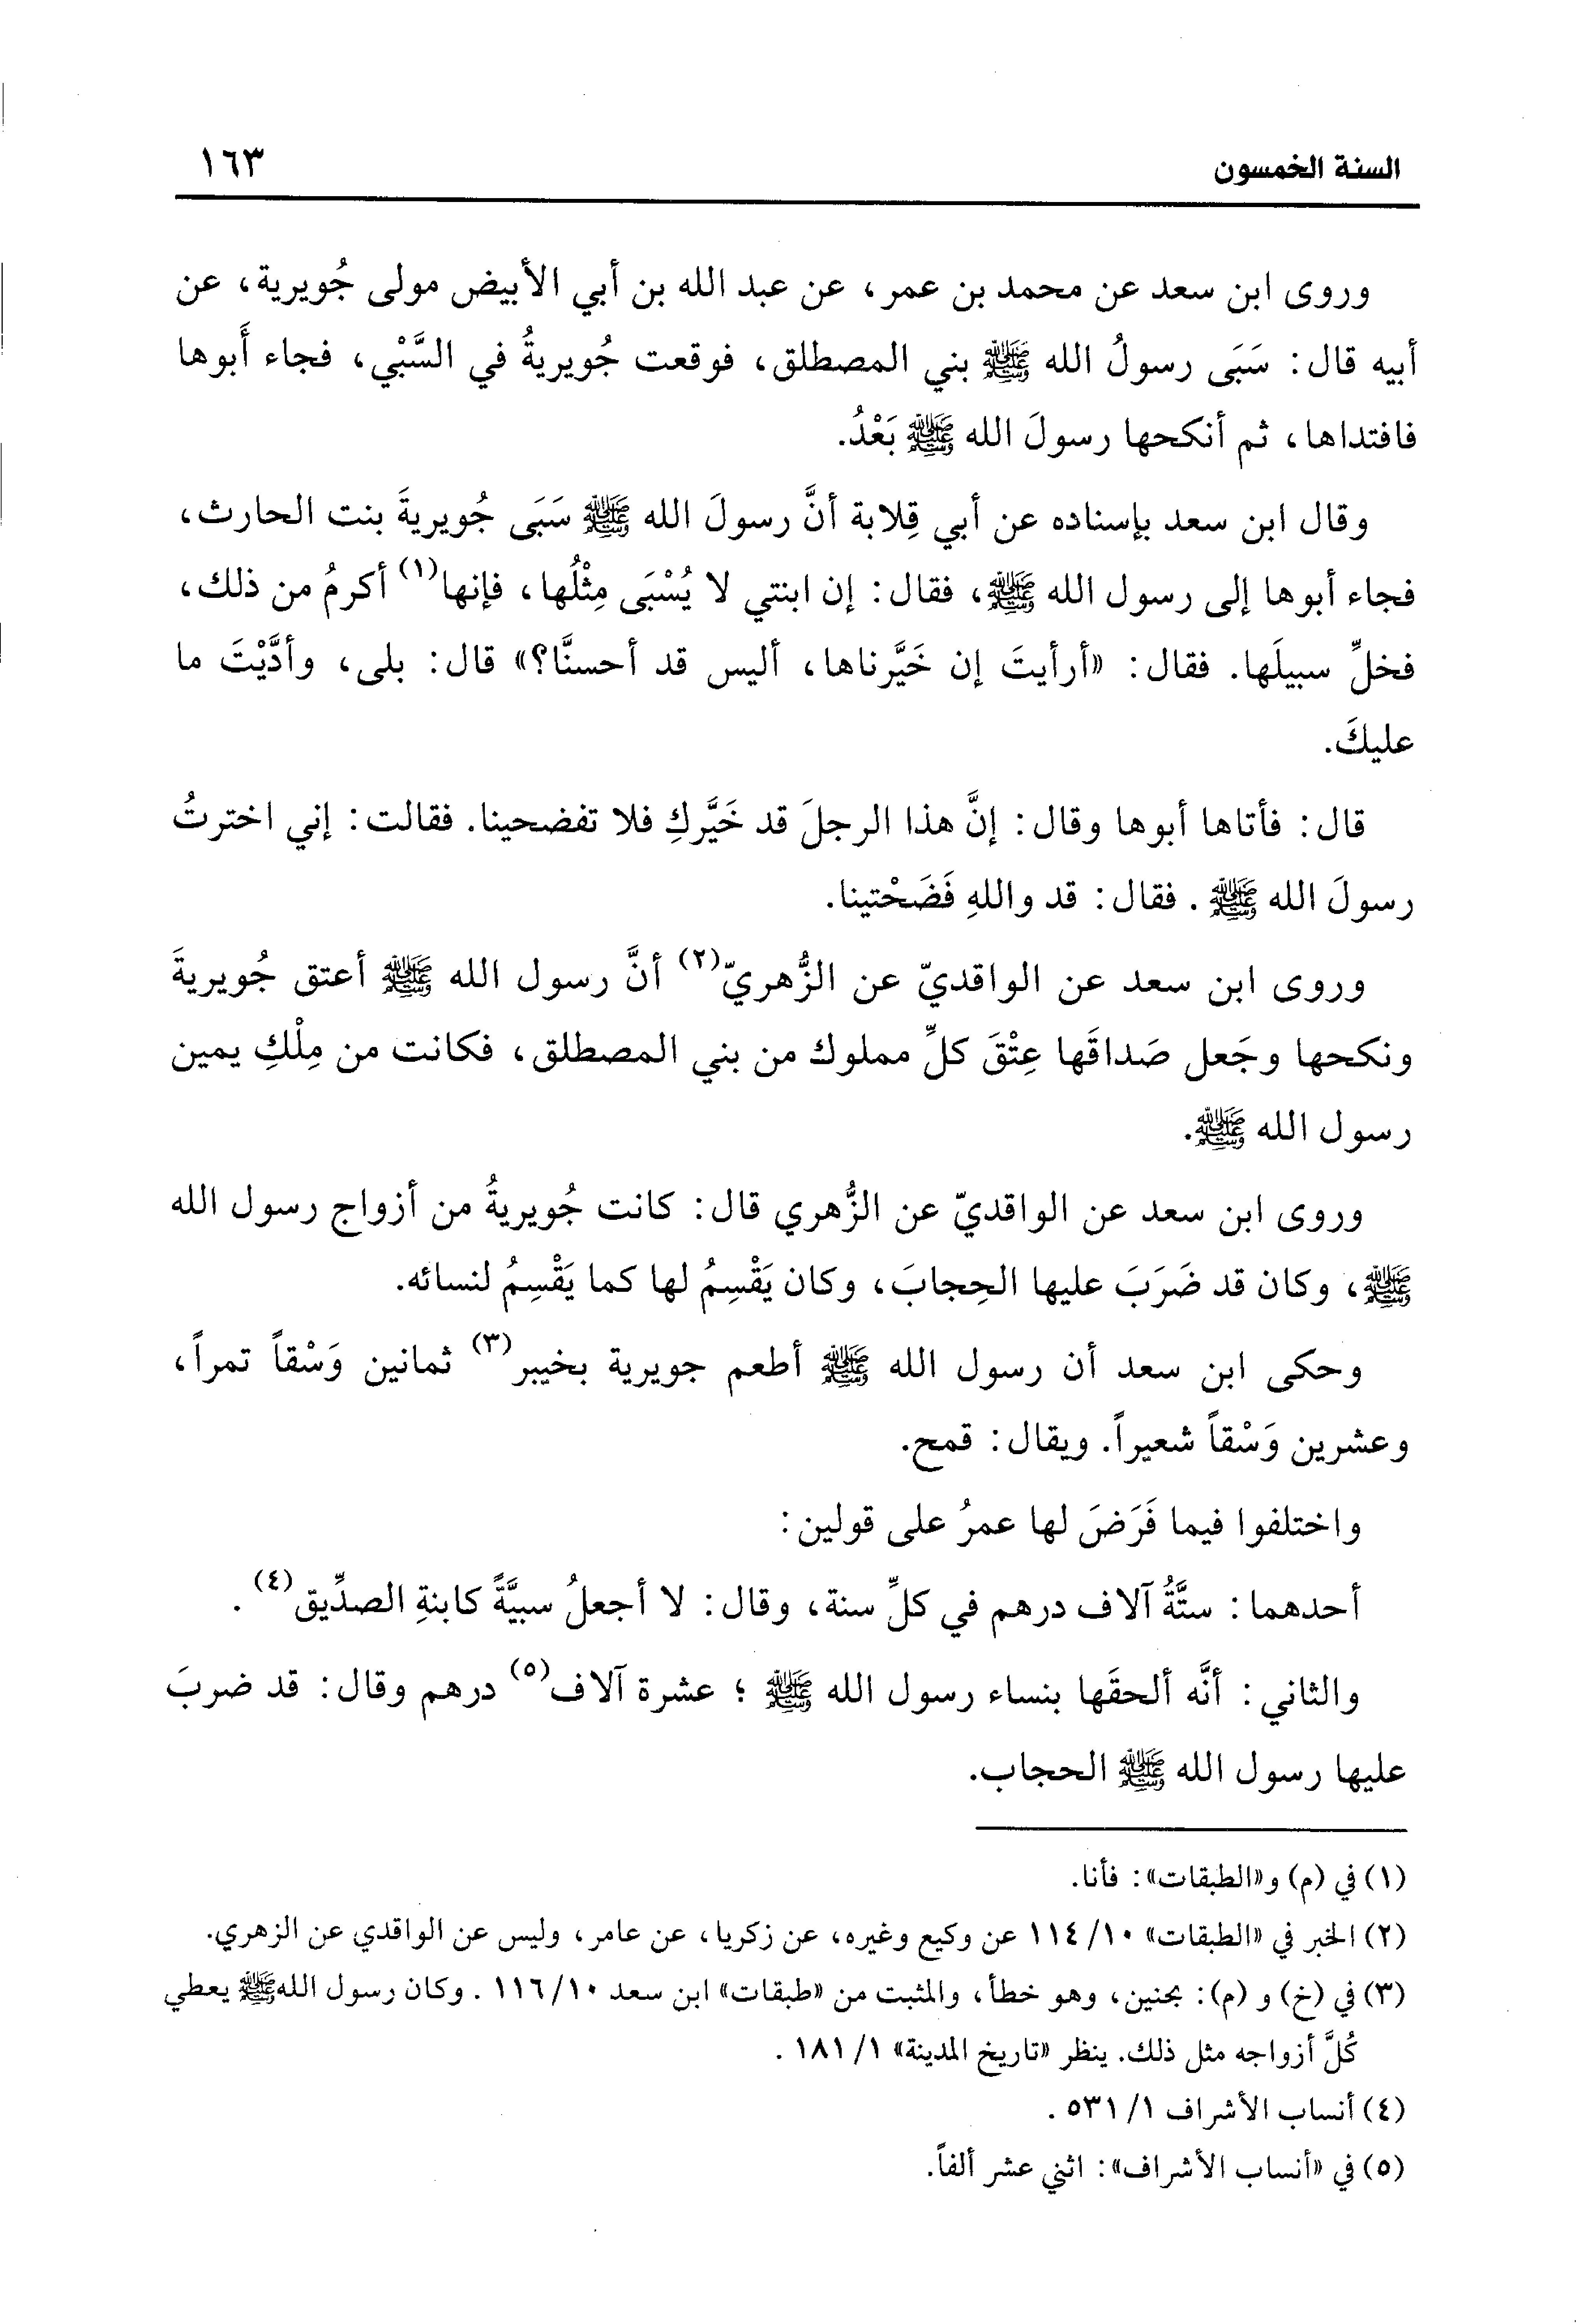 السنة الخمسون
١٦٣
وروى ابن سعد عن محمد بن عمر، عن عبد الله بن أبي الأبيض مولى جُويرية، عن
أبيه قال: سَبَى رسولُ الله ﷺ بني المصطلق، فوقعت جُويريةُ في السَّبْي، فجاء أَبوها
فافتداها، ثم أنكحها رسولَ الله ﷺ بَعْدُ.
وقال ابن سعد بإسناده عن أبي قِلابة أنَّ رسولَ الله ﷺ سَبَى جُويريةَ بنت الحارث،
فجاء أبوها إلى رسول الله ﷺ، فقال: إن ابنتي لا يُسْبَى مِثْلُها، فإنها(١) أكرمُ من ذلك،
فخلِّ سبيلَها. فقال: «أرأيتَ إن خَيَّرناها، أليس قد أحسنَّا؟» قال: بلى، وأدَّيْتَ ما
عليكَ.
قال: فأتاها أبوها وقال: إنَّ هذا الرجلَ قد خَيَّركِ فلا تفضحينا. فقالت: إني اخترتُ
رسولَ الله ﷺ. فقال: قد واللهِ فَضَحْتينا.
وروى ابن سعد عن الواقديّ عن الزُّهريّ(٢) أنَّ رسول الله ﷺ أعتق جُويريةَ
ونكحها وجَعل صَداقَها عِتْقَ كلِّ مملوك من بني المصطلق، فكانت من مِلْكِ يمين
رسول الله ﷺ.
وروى ابن سعد عن الواقديّ عن الزُّهري قال: كانت جُويريةُ من أزواج رسول الله
ﷺ، وكان قد ضَرَبَ عليها الحِجابَ، وكان يَقْسِمُ لها كما يَقْسِمُ لنسائه.
وحكى ابن سعد أن رسول الله ﷺ أطعم جويرية بخيبر(٣) ثمانين وَسْقاً تمراً،
وعشرين وَسْقاً شعيراً. ويقال: قمح.
واختلفوا فيما فَرَضَ لها عمرُ على قولين:
أحدهما: ستَّةُ آلاف درهم في كلِّ سنة، وقال: لا أجعلُ سبيَّةً كابنةِ الصدِّيق(٤).
والثاني: أنَّه ألحقَها بنساء رسول الله ﷺ؛ عشرة آلاف(٥) درهم وقال: قد ضربَ
عليها رسول الله ﷺ الحجاب.
(١) في (م) و«الطبقات»: فأنا.
(٢) الخبر في «الطبقات» ١٠/ ١١٤ عن وكيع وغيره، عن زكريا، عن عامر، وليس عن الواقدي عن الزهري.
(٣) في (خ) و (م): بحنين، وهو خطأ، والمثبت من «طبقات» ابن سعد ١٠/ ١١٦. وكان رسول الله ﷺ يعطي
كُلَّ أزواجه مثل ذلك. ينظر «تاريخ المدينة» ١/ ١٨١.
(٤) أنساب الأشراف ١/ ٥٣١.
(٥) في «أنساب الأشراف»: اثني عشر ألفاً.